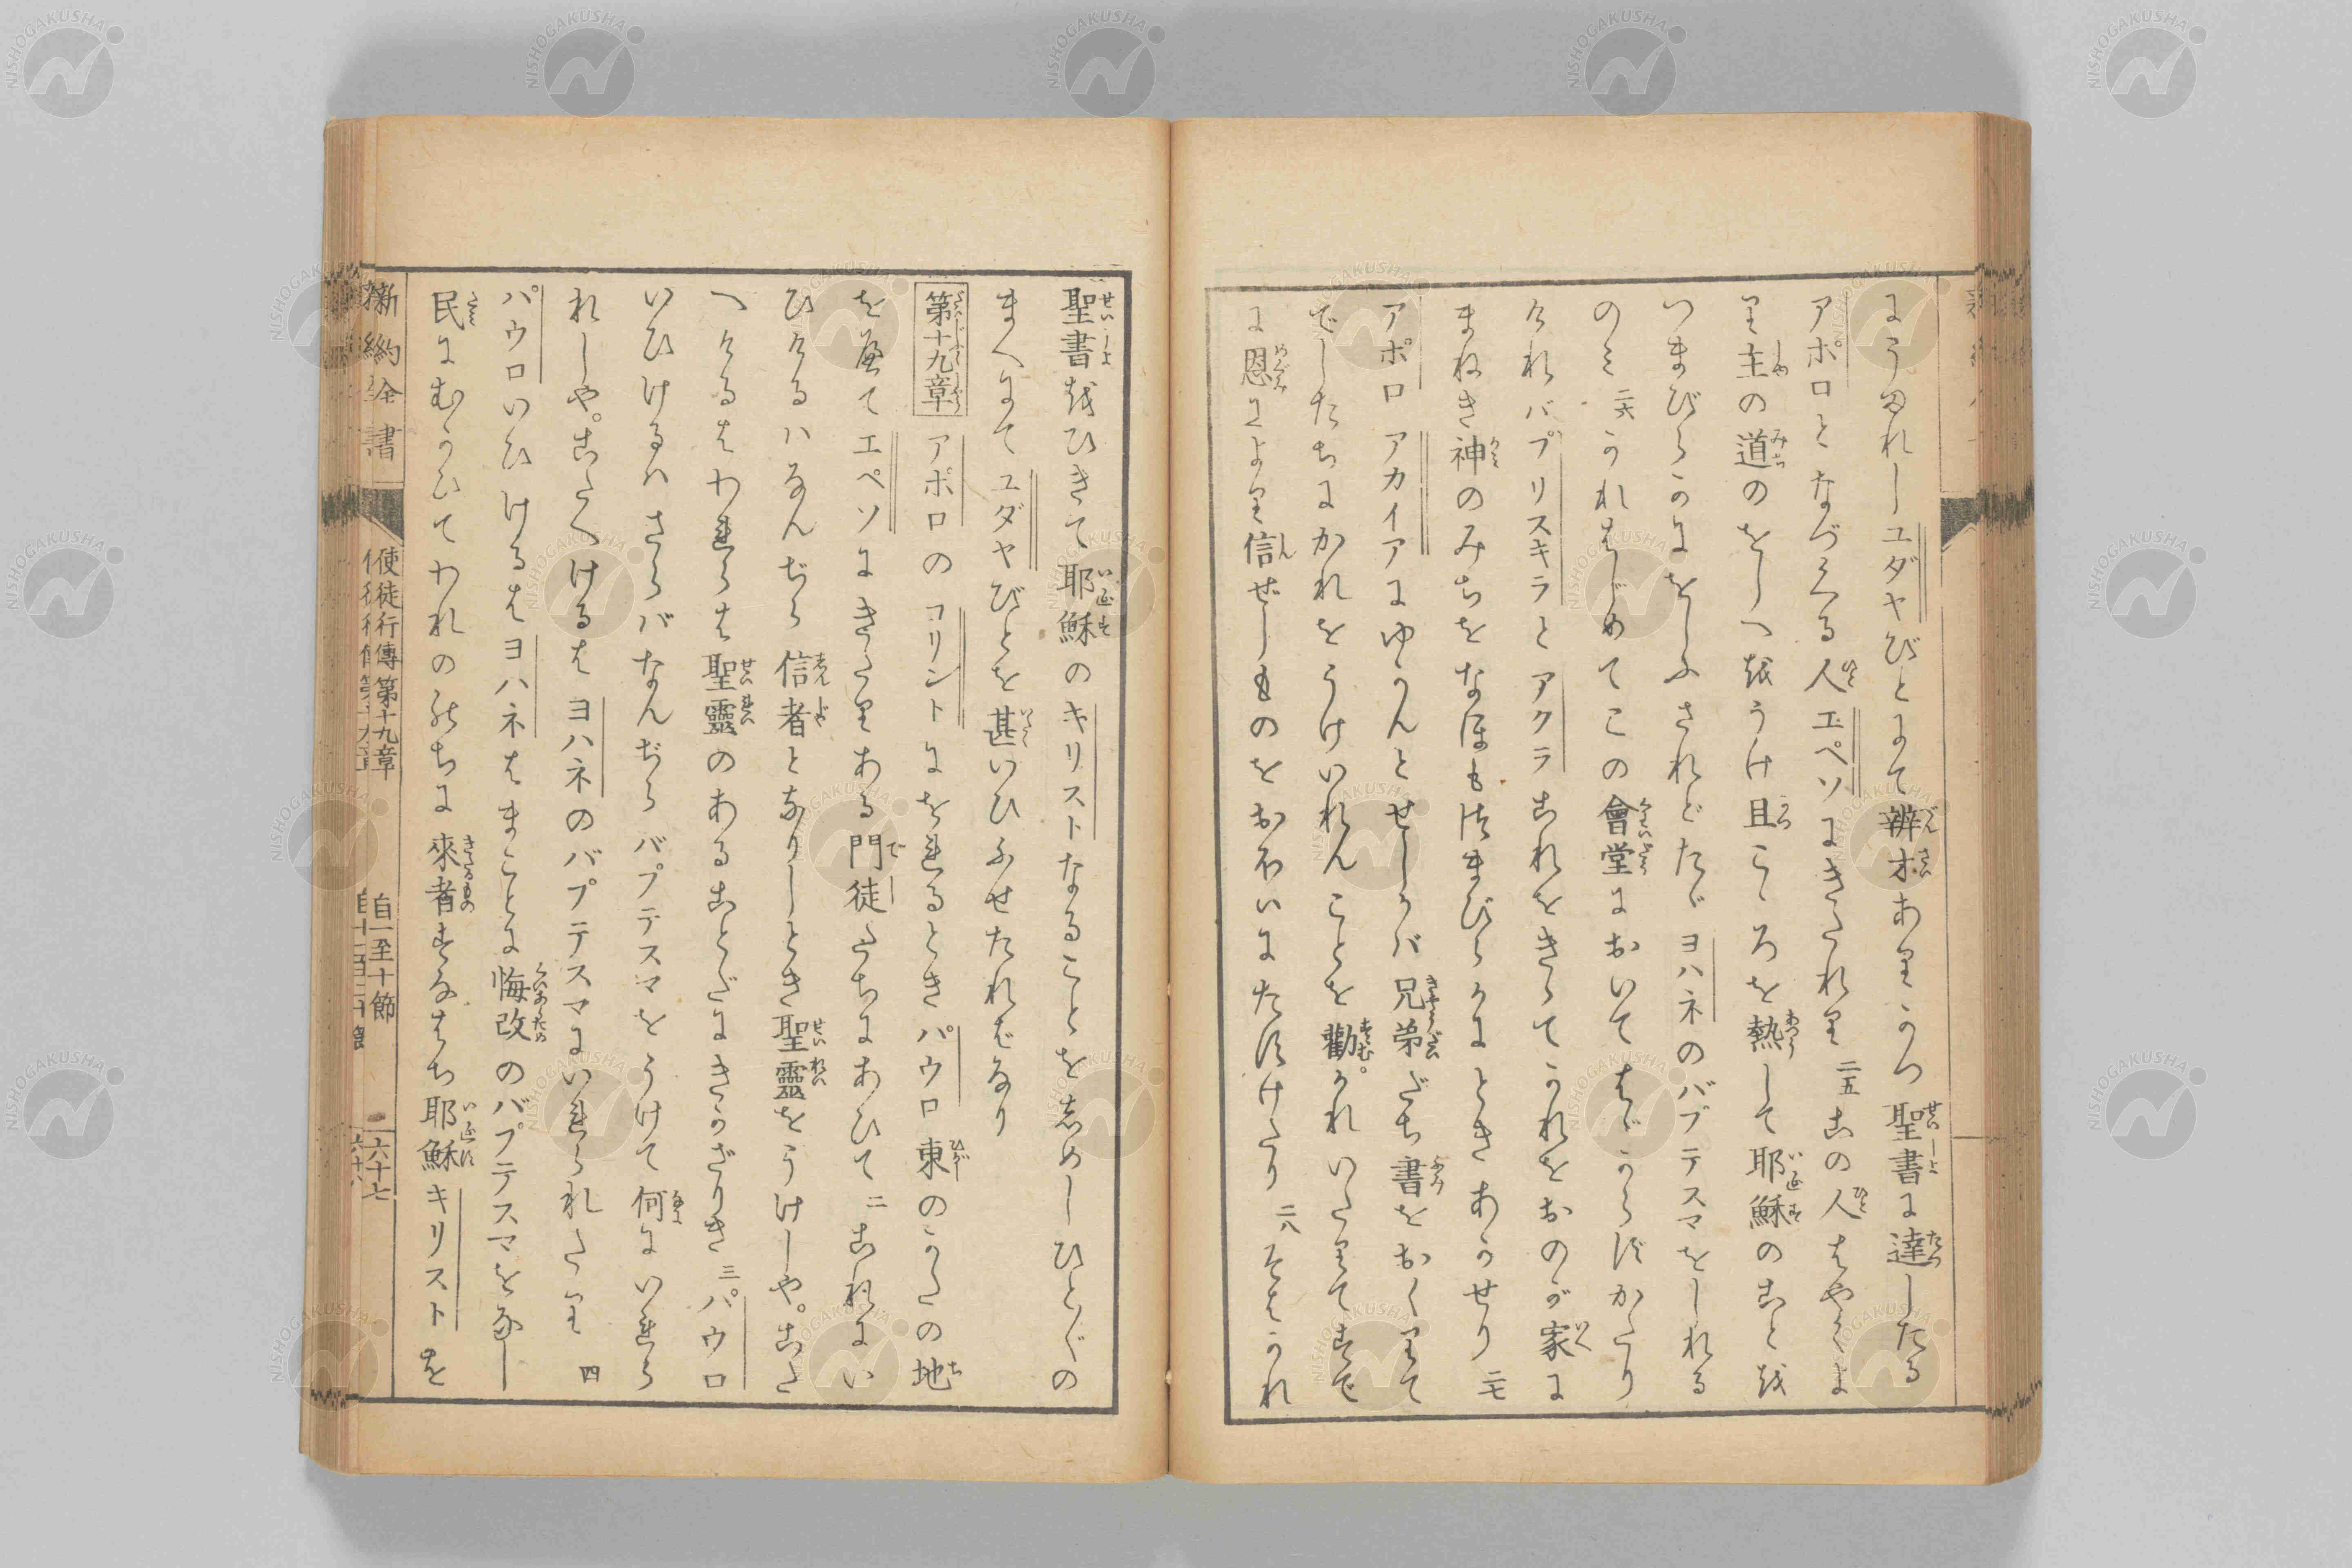 にうまれしユダヤびとにて辨才ありかつ聖書に達したる
アポロとなづくる人エペソにきたれり 二五 この人はやくよ
り主の道のをしへをうけ且こゝろを熱して耶穌のことを
つまびらかにをしふされどたゞヨハネのバプテスマをしれる
のミ 二六 かれはじめてこの會堂においてはゞからずかたり
ければプリスキラとアクラこれをきゝてかれをおのが家に
まねき神のみちをなほも詳まびらかにときあかせり 二七
アポロ アカイアにゆかんとせしかバ兄弟だち書をおくりて
でしたちにかれをうけいれんことを勸む。かれいたりてすで
に恩により信ぜしものをおほいにたすけたり 二八 そはかれ
聖書をひきて耶穌のキリストなることをしめしひとびとの
まへにてユダヤびとを甚いひふせたればなり
第十九章 アポロのコリントにをれるときパウロ東のかたの地
を歴てエペソにきたりある門徒たちにあひて 二 これにい
ひけるハなんぢら信者となりしとき聖靈をうけしや。こた
へけるはわれらは聖靈のあることだにきかざりき 三 パウロ
いひけるハさらバなんぢらバプテスマをうけて何にいれら
れしや。こたへけるはヨハネのバプテスマにいれられたり 四
パウロいひけるはヨハネはまことに悔改のバプテスマをなし
民にむかひてわれののちに來者すなはち耶穌キリストを
新約全書
使徒行傳第十九章
自一至十節
六十七